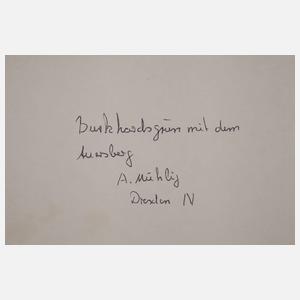 Burkhardsgrün mit dem
Auersberg
A. Mühlig
Dresden N